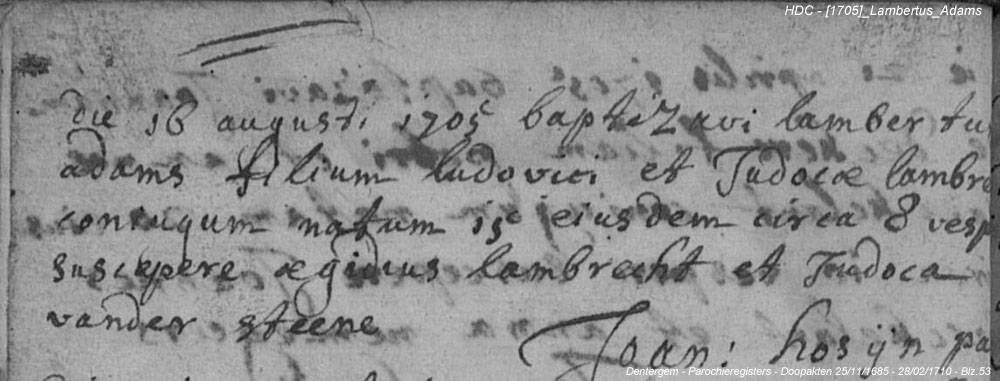 HDC - [1705]_Lambertus_Adams
die 16 august. 1705 baptizavi lambertu
adams filium ludovici et Judocæ lambre
coniugum natum 15e eiusdem circa 8 vesp
suscepere ægidius lambrecht et Judoca
vander steene
Joan: hosijn pa
Dentergem - Parochieregisters - Doopakten 25/11/1685 - 28/02/1710 - Blz.53